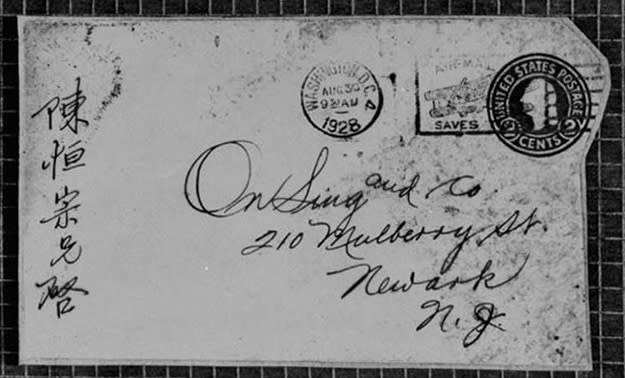 陳恒宗兄啓
WASHINGTON, D.C. 4
AUG 30
AM
1928
AIR MAIL
SAVES
UNITED STATES POSTAGE
2 CENTS 2
On Sing and Co
210 Mulberry St.
Newark
N. J.